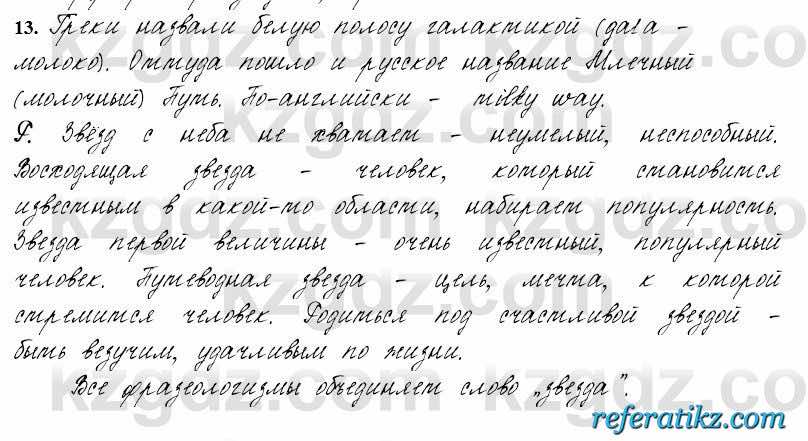 13. Греки назвали белую полосу галактикой (gala –
молоко). Оттуда пошло и русское название Млечный
(молочный) Путь. По-английски – milky way.
Р. Звёзд с неба не хватает – неумелый, неспособный.
Восходящая звезда – человек, который становится
известным в какой-то области, набирает популярность.
Звезда первой величины – очень известный, популярный
человек. Путеводная звезда – цель, мечта, к которой
стремится человек. Родиться под счастливой звездой –
быть везучим, удачливым по жизни.
Все фразеологизмы объединяет слово „звезда".
referatikz.com